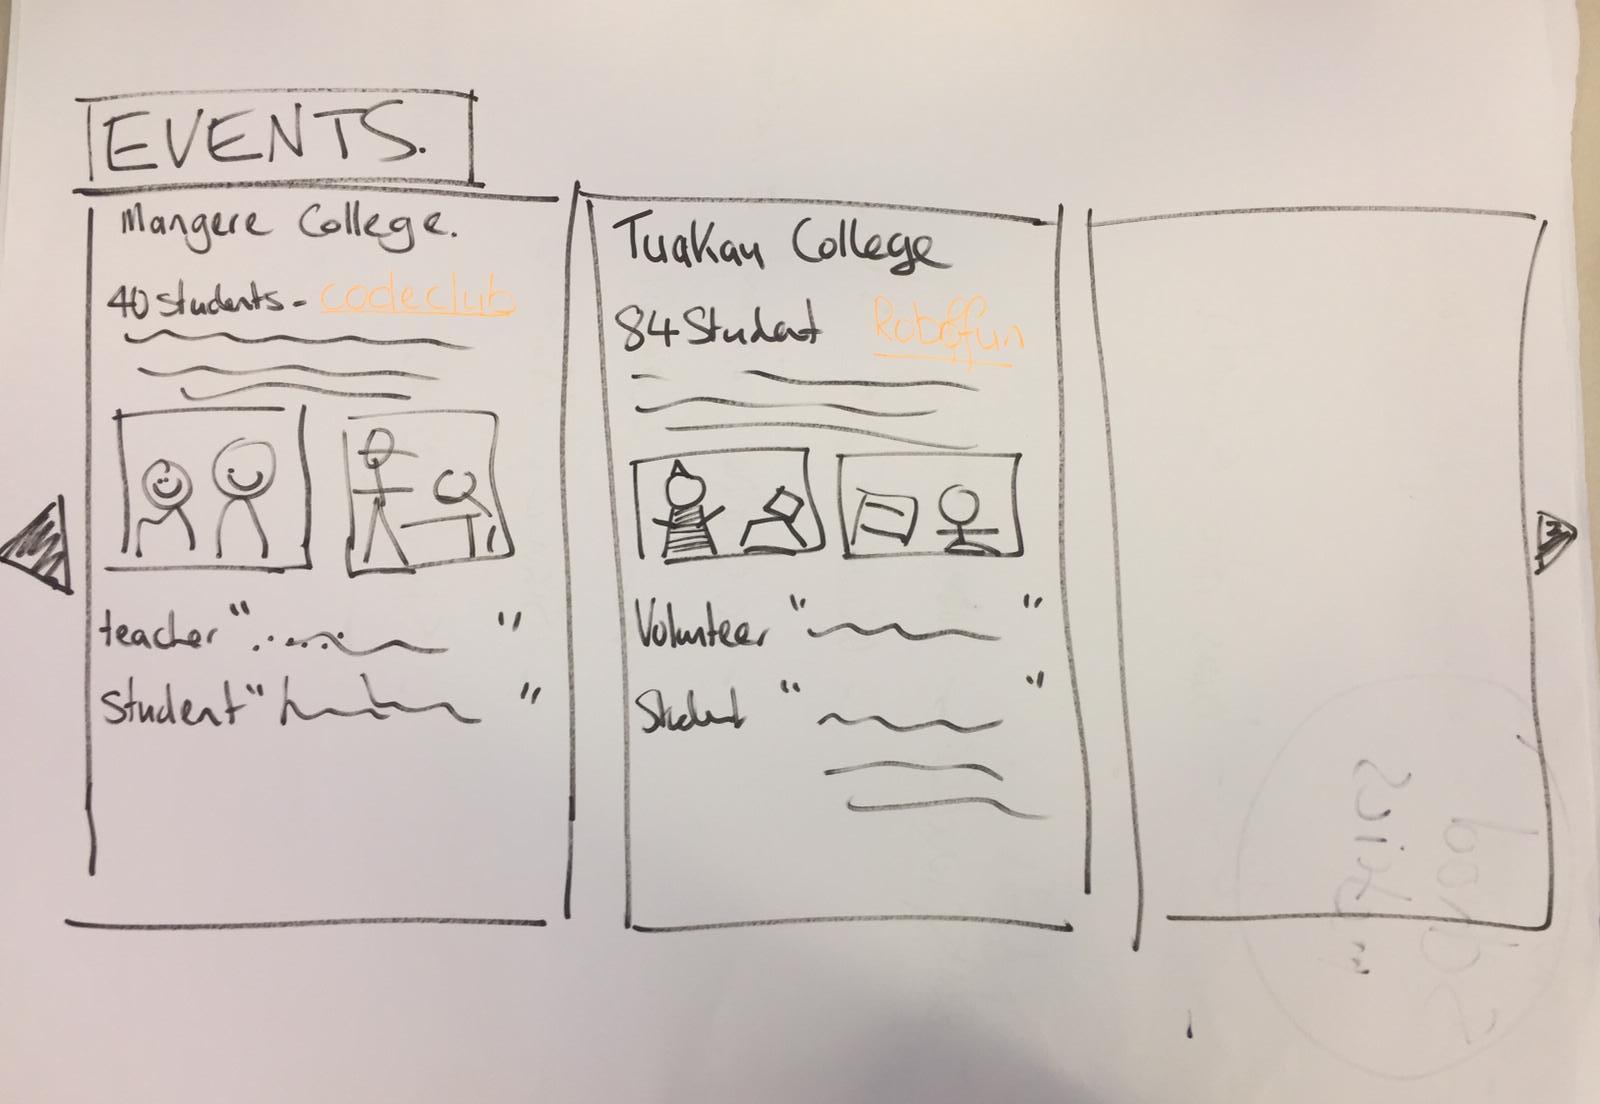 EVENTS.
Mangere College.
40 Students - codeclub
teacher " "
Student " "
Tuakau College
84 Student Robofun
Volunteer " "
Student " "